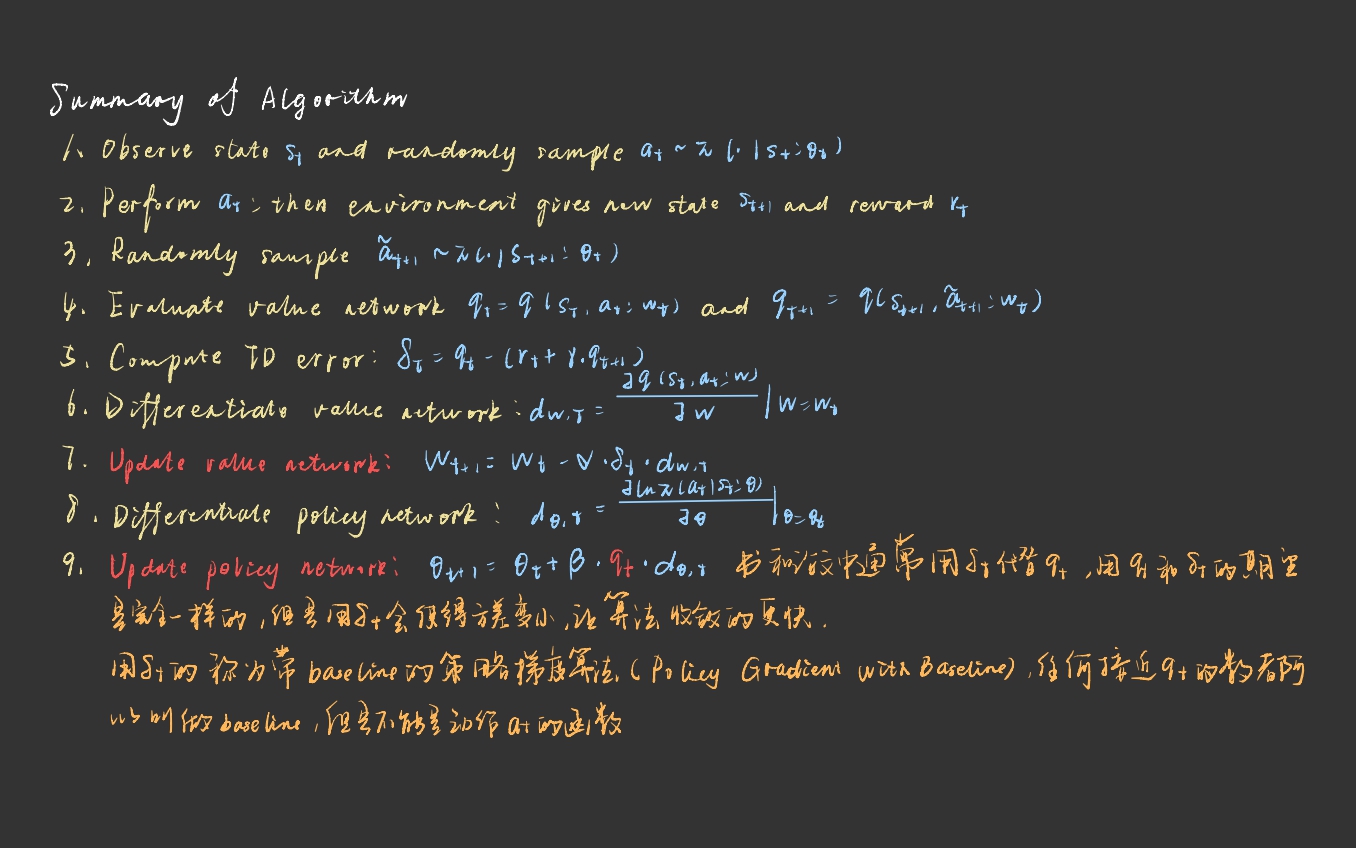 Summary of Algorithm
1. Observe state sₜ and randomly sample aₜ ~ π(·|sₜ; θₜ)
2. Perform aₜ; then environment gives new state sₜ₊₁ and reward rₜ
3. Randomly sample ãₜ₊₁ ~ π(·|sₜ₊₁; θₜ)
4. Evaluate value network qₜ = q(sₜ, aₜ; wₜ) and qₜ₊₁ = q(sₜ₊₁, ãₜ₊₁; wₜ)
5. Compute TD error: δₜ = qₜ - (rₜ + γ·qₜ₊₁)
6. Differentiate value network: d_{w,t} = ∂q(sₜ, aₜ; w)/∂w |w=wₜ
7. Update value network: wₜ₊₁ = wₜ - α·δₜ·d_{w,t}
8. Differentiate policy network: d_{θ,t} = ∂ln π(aₜ|sₜ; θ)/∂θ |θ=θₜ
9. Update policy network: θₜ₊₁ = θₜ + β·qₜ·d_{θ,t} 书和论文中通常用δₜ代替qₜ,用qₜ和δₜ的期望
是完全一样的,但是用δₜ会使得方差变小,让算法收敛的更快.
用δₜ的称为带baseline的策略梯度算法(Policy Gradient with Baseline),任何接近qₜ的数都可
以叫做baseline,但是不能是动作aₜ的函数